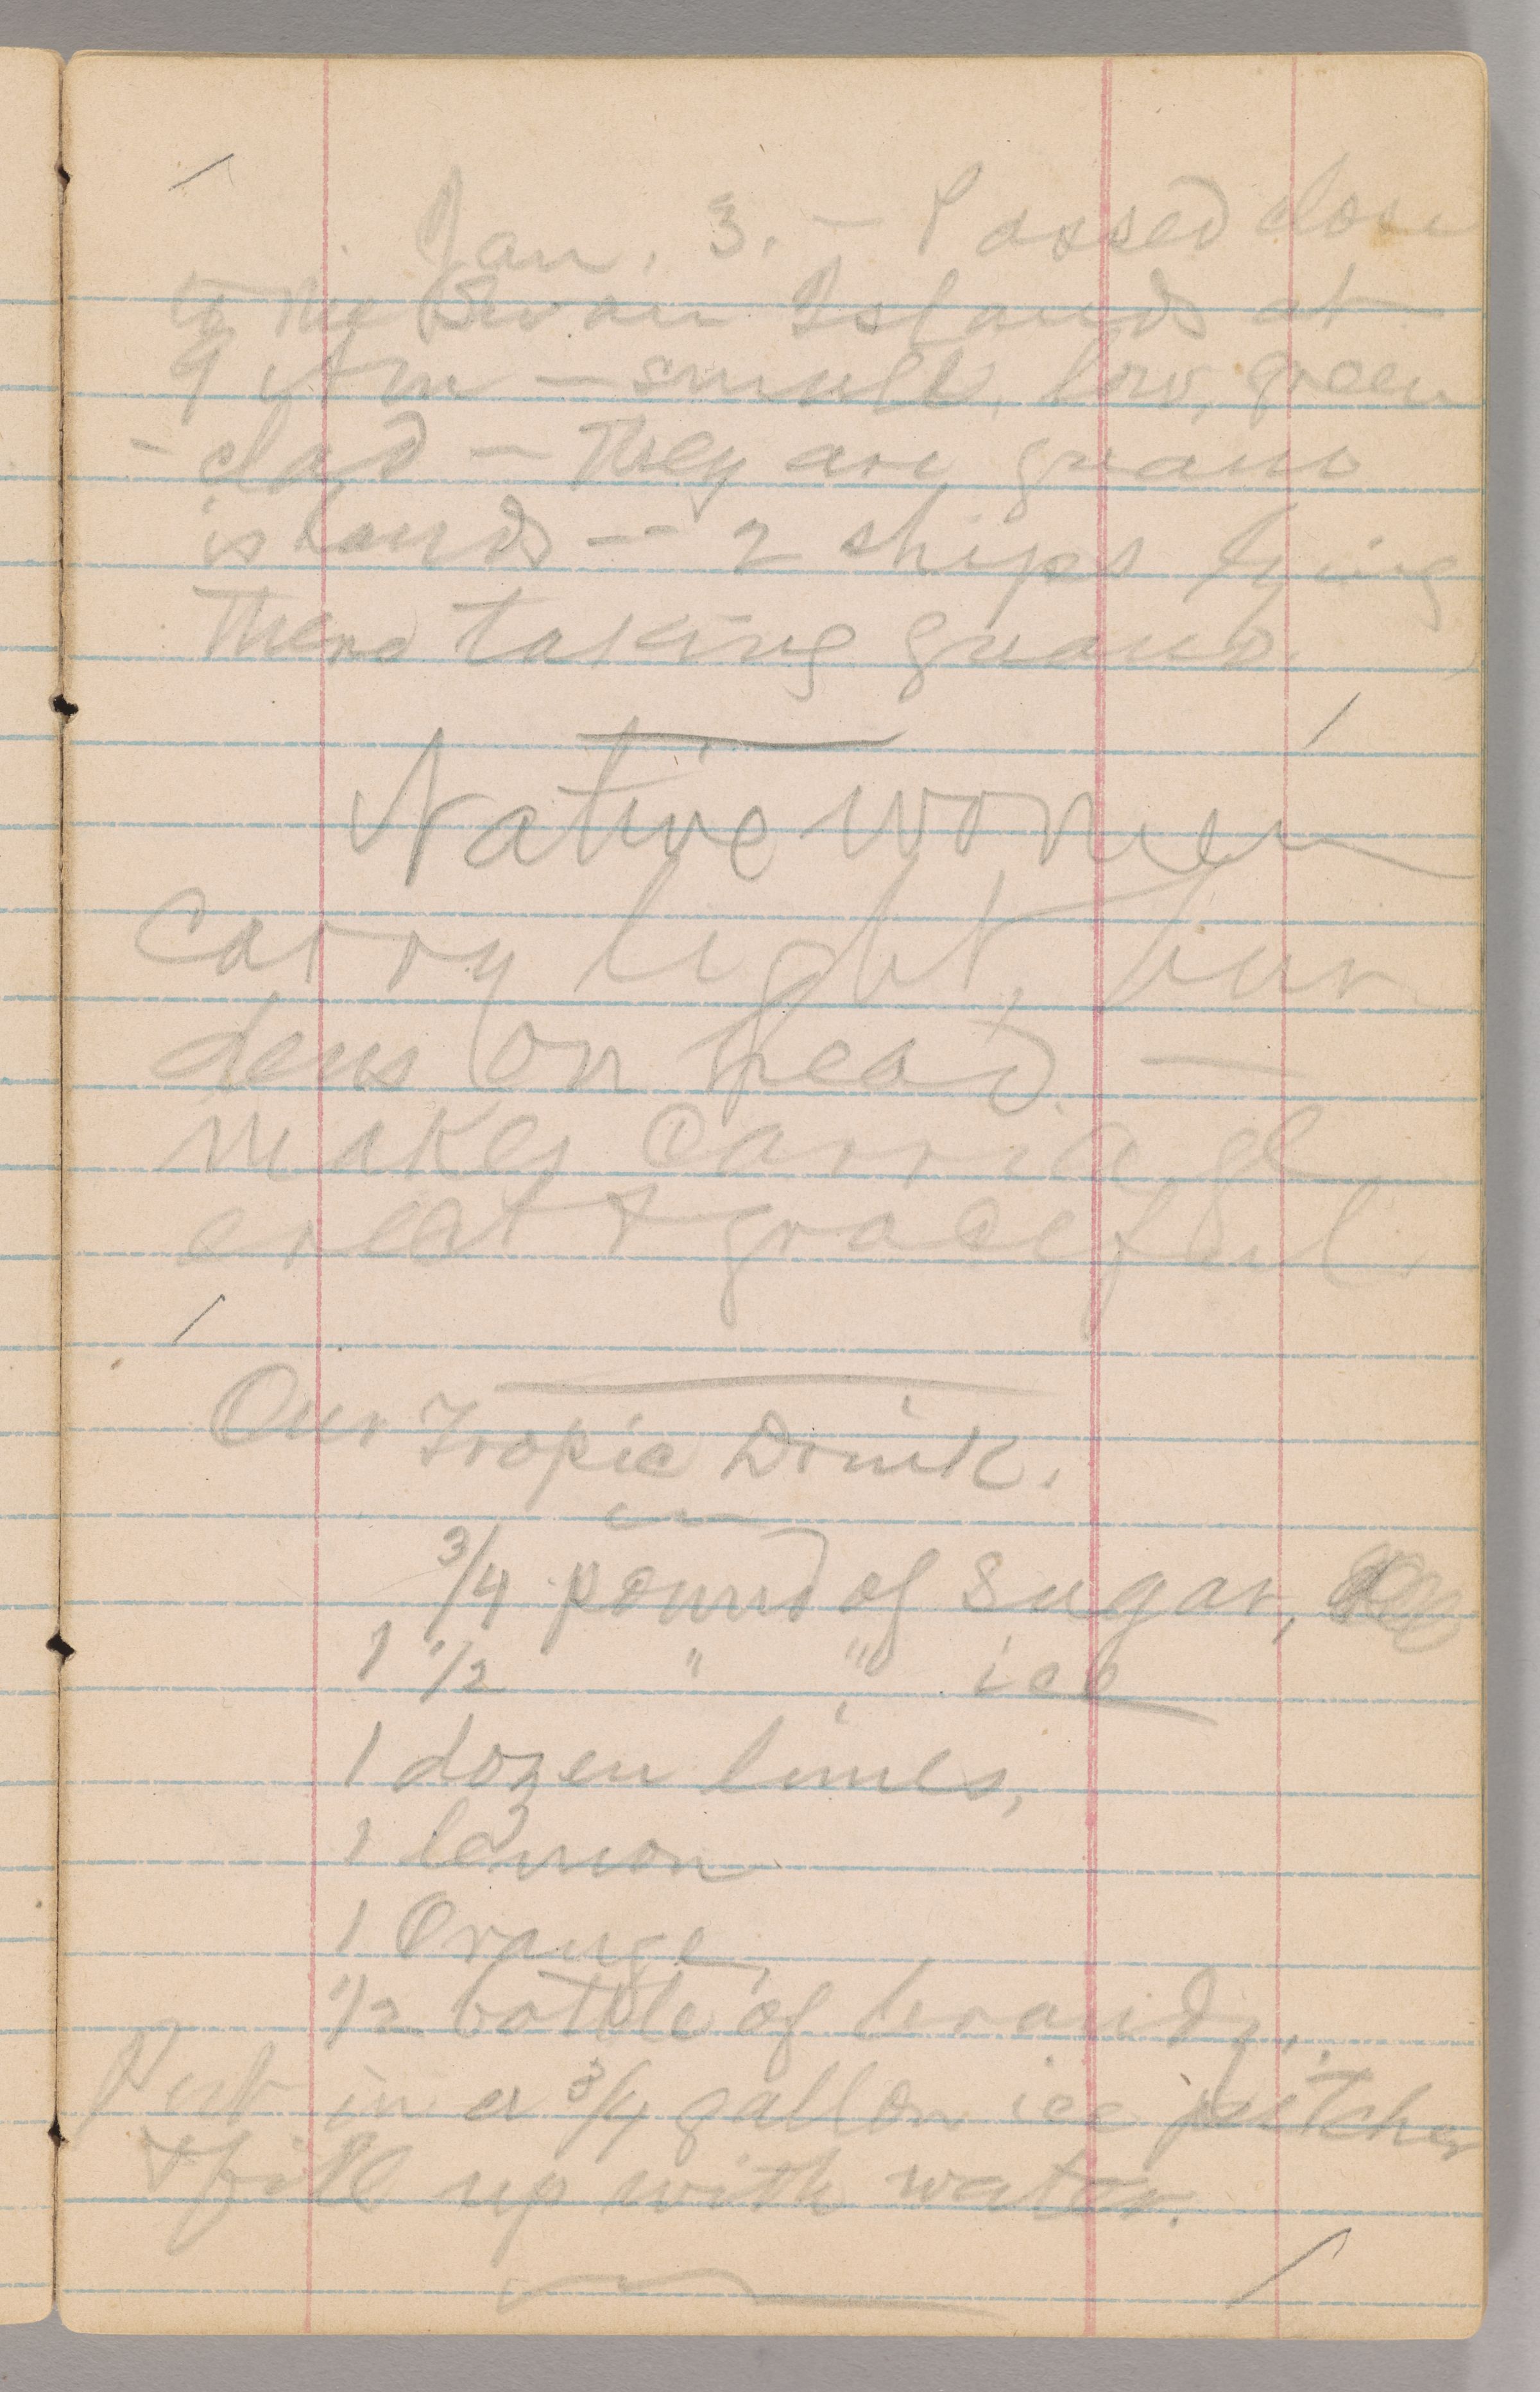 Jan. 3. — Passed close
to the Swan Islands at
9 AM — small, low, green
-clad — They are guano
islands — 2 ships lying
there taking guano.
Native women
carry light bur
dens on head. —
makes carriage
erect & graceful
Our Tropic Drink.
3/4 pound of sugar,
1 1/2 " " ice
1 dozen limes,
1 lemon
1 Orange,
1/2 bottle of brandy.
Put in a 3/4 gallon ice pitcher
& fill up with water.